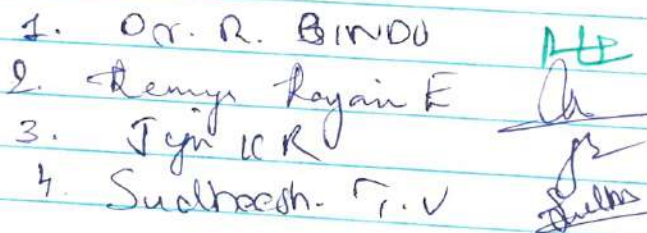 1. Dr. R. BINDU
2. Remya Rayan E
3. K R
4. Sudheesh. T.V